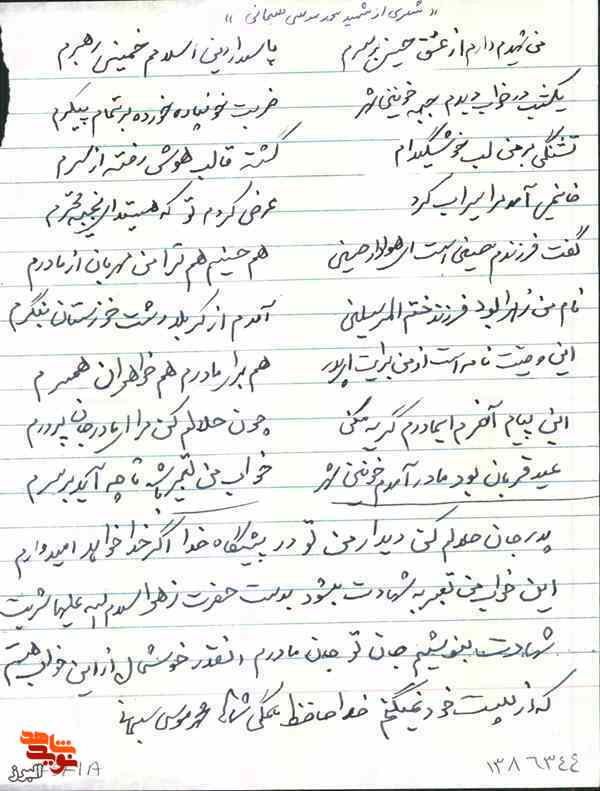 « شعری از شهید محمد موسی سبحانی »
من شهیدم دارم از عشق حسین بر سرم پاسدار دین اسلامم خمینی رهبرم
یکشب در خواب دیدم جبهه خونین شهر ضربت خونپاره خورده بر تمام پیکرم
تشنگی بر من لب خوشگیدام گشته قالب هوشی رفته از سرم
خانمی آمد مرا سیراب کرد عرض کردم تو که هستید ای محترم
گفت فرزندم است ای هولدار حسینی هم حسینم هم ترا من مهربان از مادرم
نام من زهرا بود فرزند ختم المرسلینی آمدم از کربلا دشت خوزستان بنگرم
این وصیت نامه است از من برایت ای پدر هم برار مادرم هم خواهران همسرم
این پیام آخرم ایمادرم گریه مکنی چون حلالم کن مرا ای مادر جان پرورم
عید قربان بود مادر آمدم خونین شهر خواب من تعبیر باشه تا چه آید بر سرم
پدر جان حلالم کنی دیدار من تو در پیشگاه خدا اگر خدا خواهد امیدوارم
این خواب من تعبیر به شهادت بشود بدست حضرت زهرا سلام الله علیها شربت
شهادت بنوشیم جان تو جان مادرم انقدر خوشحال از این خواب هستم
که در پوست خود نمیگنجم خداحافظ همگی شما محمد موسی سبحانی
۱۳۸۶۳۴۴
شاهد
نوید
البرز